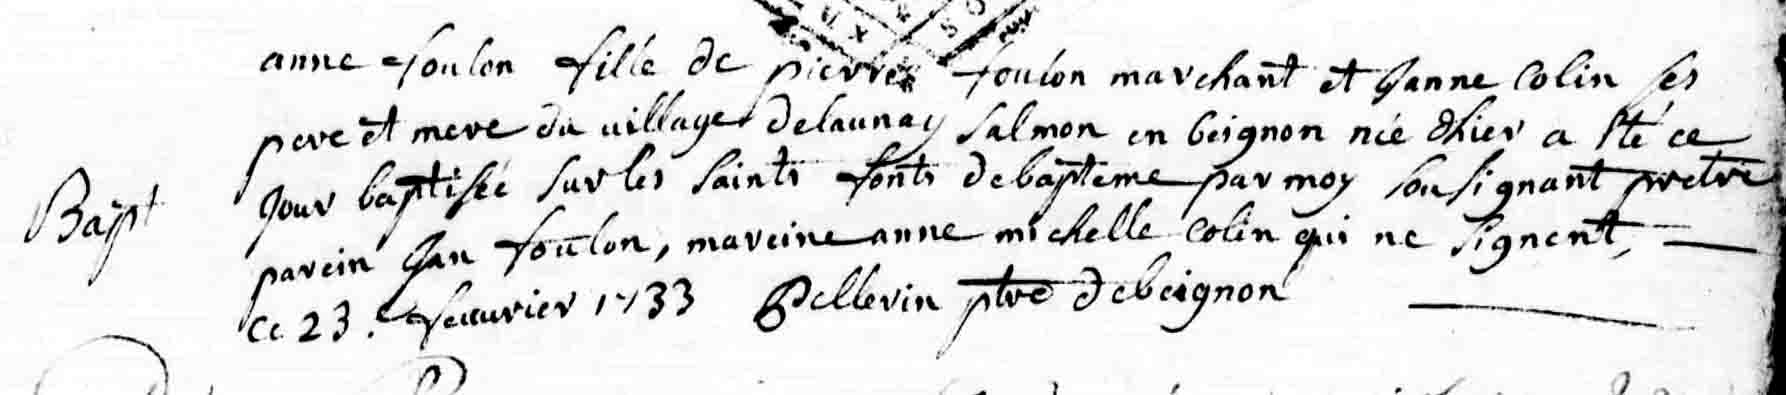 anne foulon fille de pierre foulon marchant et Janne Colin ses
pere et mere du uillage delaunay Salmon en beignon née dhier a Eté ce
Bapt
Jour baptisée sur les saints fonts debapteme par moy sousignant pretre
parein Jan foulon, mareine anne michelle Colin qui ne signent,
Ce 23. feuurier 1733 Pellerin ptre debeignon